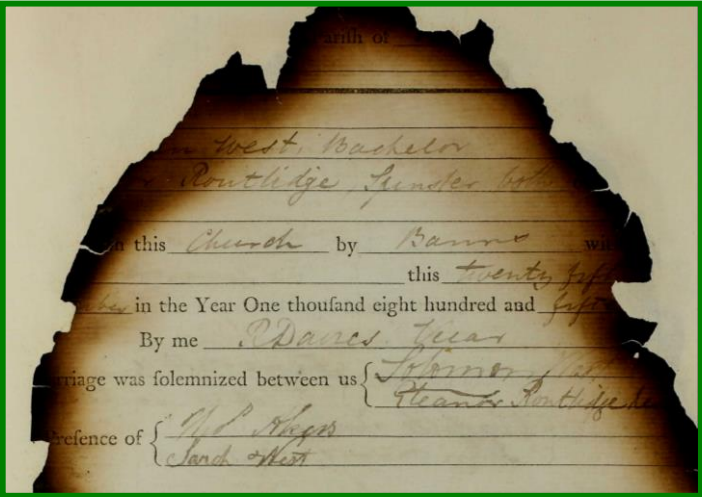 arish of
n West, Bachelor
r Routlidge, Spinster both
n this Church by Banns wi
this twenty fift
ber in the Year One thouſand eight hundred and fift
By me R Davies Vicar
rriage was ſolemnized between us { Solomon West
Eleanor Routlidge
reſence of {
Sarah West